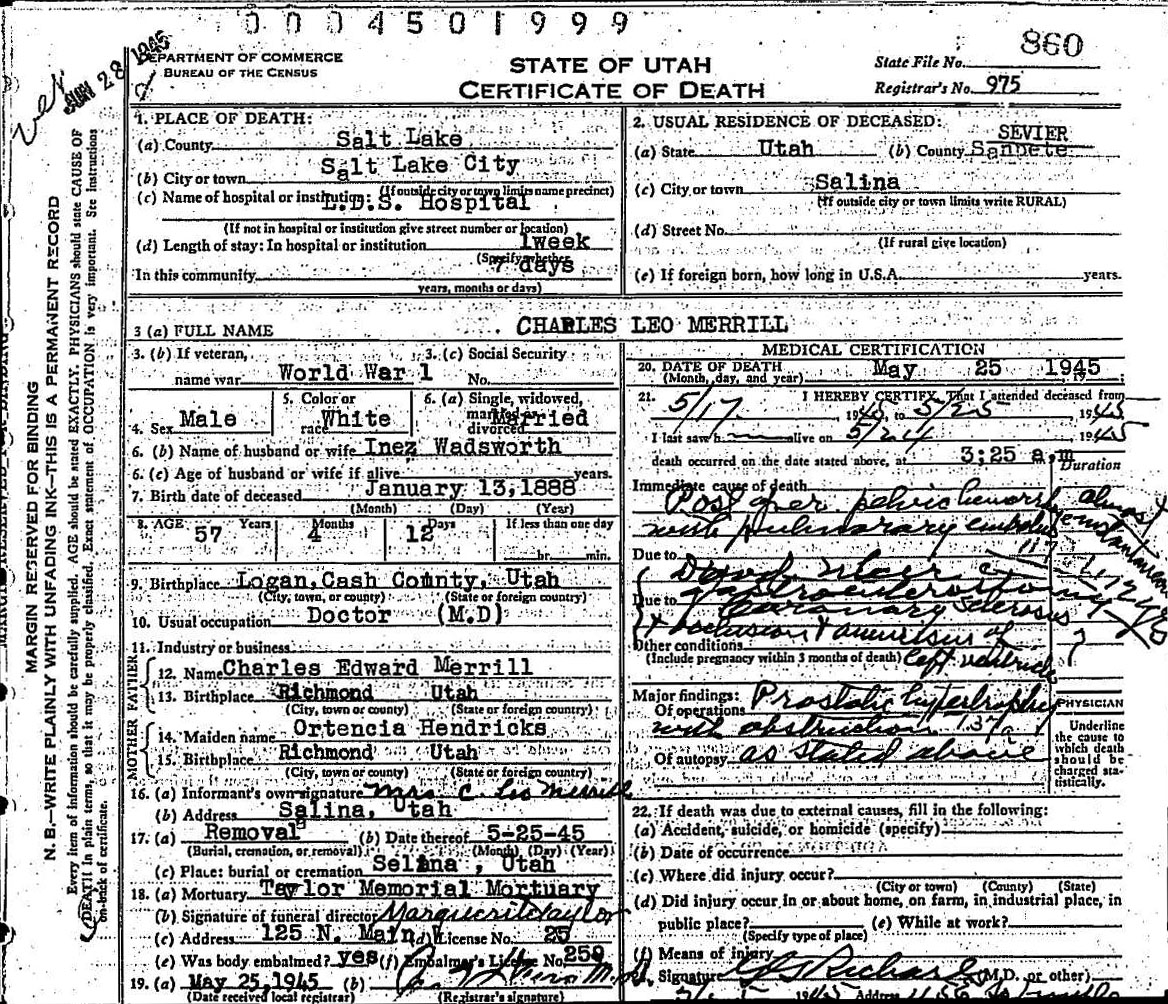 0 0 0 4 5 0 1 9 9 9
860
JUN 28 1945
DEPARTMENT OF COMMERCE
BUREAU OF THE CENSUS
STATE OF UTAH
CERTIFICATE OF DEATH
State File No.
Registrar's No. 975
MARGIN RESERVED FOR BINDING
N. B.—WRITE PLAINLY WITH UNFADING INK—THIS IS A PERMANENT RECORD
Every item of information should be carefully supplied. AGE should be stated EXACTLY. PHYSICIANS should state CAUSE OF
DEATH in plain terms, so that it may be properly classified. Exact statement of OCCUPATION is very important. See Instructions
on back of certificate.
1. PLACE OF DEATH:
(a) County Salt Lake
(b) City or town Salt Lake City
(If outside city or town limits name precinct)
(c) Name of hospital or institution: L.D.S. Hospital
(If not in hospital or institution give street number or location)
(d) Length of stay: In hospital or institution 1week
(Specify whether
In this community 7 days
years, months or days)
2. USUAL RESIDENCE OF DECEASED:
SEVIER
(a) State Utah (b) County Sanpete
(c) City or town Salina
(If outside city or town limits write RURAL)
(d) Street No.
(If rural give location)
(e) If foreign born, how long in U.S.A. years.
3 (a) FULL NAME CHARLES LEO MERRILL
3. (b) If veteran,
name war World War 1
3. (c) Social Security
No.
4. Sex Male
5. Color or
race White
6. (a) Single, widowed,
married or
divorced Married
6. (b) Name of husband or wife Inez Wadsworth
6. (c) Age of husband or wife if alive years.
7. Birth date of deceased January 13,1888
(Month) (Day) (Year)
8. AGE 57 Years 4 Months 12 Days If less than one day
hr. min.
9. Birthplace Logan,Cash County, Utah
(City, town, or county) (State or foreign country)
10. Usual occupation Doctor (M.D)
11. Industry or business
FATHER
12. Name Charles Edward Merrill
13. Birthplace Richmond Utah
(City, town or county) (State or foreign country)
MOTHER
14. Maiden name Ortencia Hendricks
15. Birthplace Richmond Utah
(City, town or county) (State or foreign country)
16. (a) Informant's own signature Mrs. C. Leo Merrill
(b) Address Salina, Utah
17. (a) Removal (b) Date thereof 5-25-45
(Burial, cremation, or removal) (Month) (Day) (Year)
(c) Place: burial or cremation Selina, Utah
18. (a) Mortuary Taylor Memorial Mortuary
(b) Signature of funeral director Marguerite Taylor
(c) Address 125 N. Main (d) License No. 25
(e) Was body embalmed? yes (f) Embalmer's License No. 259
19. (a) May 25,1945 (b)
(Date received local registrar) (Registrar's signature)
MEDICAL CERTIFICATION
20. DATE OF DEATH
(Month, day, and year) May 25 1945
21. I HEREBY CERTIFY, That I attended deceased from
5/17, 1945, to 5/25, 1945
I last saw h alive on 5/24, 1945
death occurred on the date stated above, at 3:25 a.m
Duration
Immediate cause of death
Post oper pelvic hemorrh almost
with pulmonary embolus
Due to
Duod. ulcer
Due to gastroenterostomy
Coronary sclerosis
& occlusion & aneurism of
Other conditions
(Include pregnancy within 3 months of death) left ventricle
Major findings:
Of operations Prostatic hypertrophy
with obstruction
Of autopsy as stated above
PHYSICIAN
Underline
the cause to
which death
should be
charged sta-
tistically.
22. If death was due to external causes, fill in the following:
(a) Accident, suicide, or homicide (specify)
(b) Date of occurrence
(c) Where did injury occur?
(City or town) (County) (State)
(d) Did injury occur in or about home, on farm, in industrial place, in
public place? (e) While at work?
(Specify type of place)
(f) Means of injury
Signature G S Richards (M.D. or other)
1945 Address